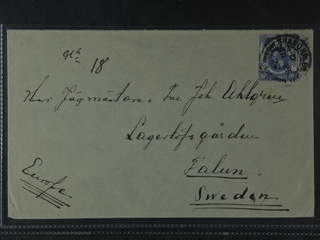 18
Herr Jägmästare Joh Ahlgren
Lagerlöfsgården
Falun.
Sweden
Europe